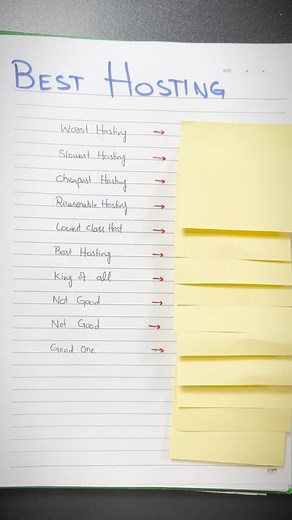 BEST HOSTING
Worst Hosting →
Slowest Hosting →
Cheapest Hosting →
Reasonable Hosting →
Lowest Class Host →
Best Hosting →
King of all →
Not Good →
Not Good →
Good One →